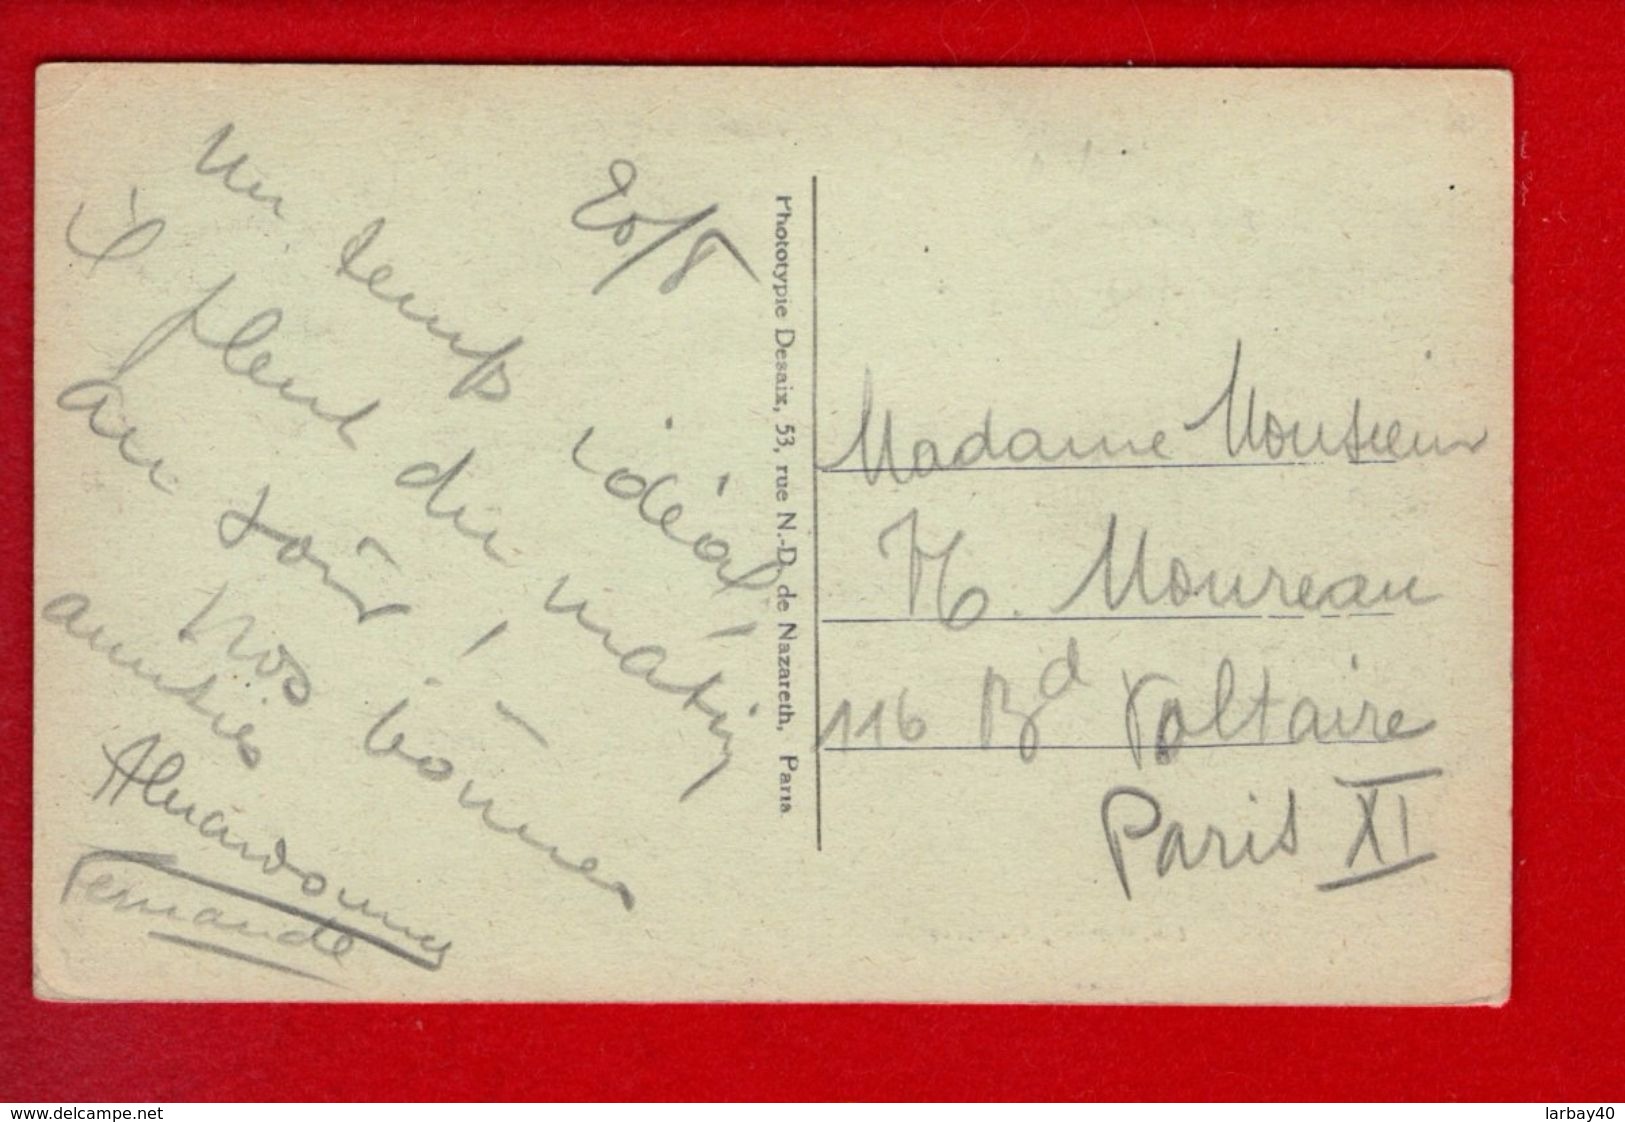 20/8
Un temps idéal
il pleut du matin
au soir !
Nos bonnes
amitiés
Fernande
Phototypie Desaix, 53, rue N.-D. de Nazareth, Paris
Madame Monsieur
M. Moureau
116 Bd Voltaire
Paris XI
www.delcampe.net
larbay40